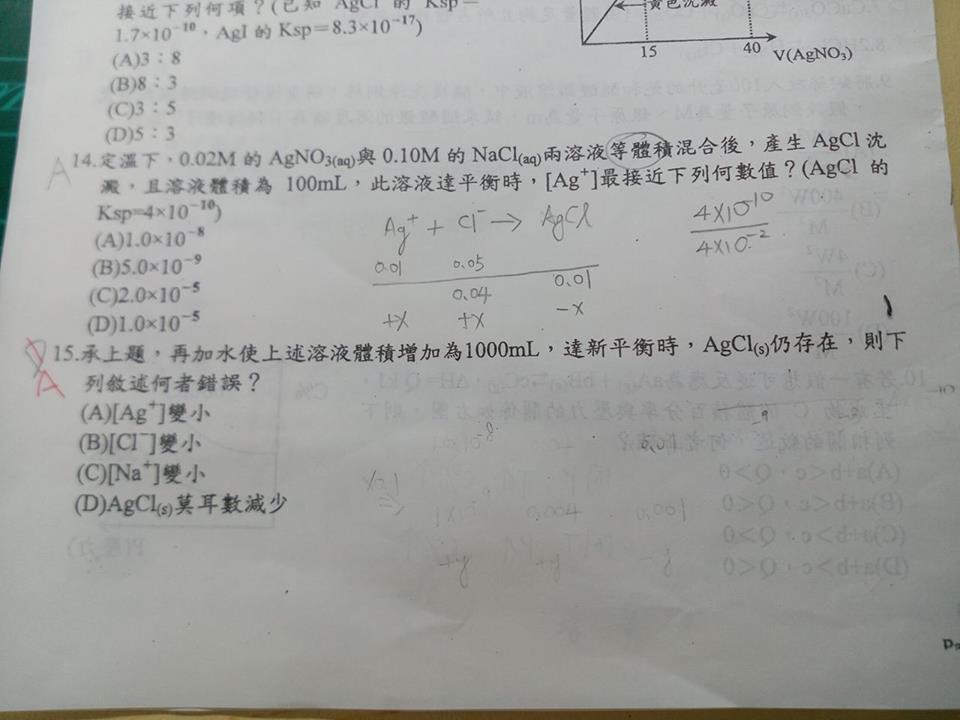 接近下列何項？(已知 AgCl 的 Ksp=
1.7×10⁻¹⁰，AgI 的 Ksp=8.3×10⁻¹⁷)
(A)3：8
(B)8：3
(C)3：5
(D)5：3
黃色沉澱
15 40 V(AgNO₃)
A 14.定溫下，0.02M 的 AgNO₃(aq)與 0.10M 的 NaCl(aq)兩溶液等體積混合後，產生 AgCl 沉
澱，且溶液體積為 100mL，此溶液達平衡時，[Ag⁺]最接近下列何數值？(AgCl 的
Ksp=4×10⁻¹⁰)
(A)1.0×10⁻⁸
(B)5.0×10⁻⁹
(C)2.0×10⁻⁵
(D)1.0×10⁻⁵
Ag⁺ + Cl⁻ → AgCl
0.01 0.05
0.04 0.01
+x +x -x
4×10⁻¹⁰
4×10⁻²
A 15.承上題，再加水使上述溶液體積增加為1000mL，達新平衡時，AgCl(s)仍存在，則下
列敘述何者錯誤？
(A)[Ag⁺]變小
(B)[Cl⁻]變小
(C)[Na⁺]變小
(D)AgCl(s)莫耳數減少